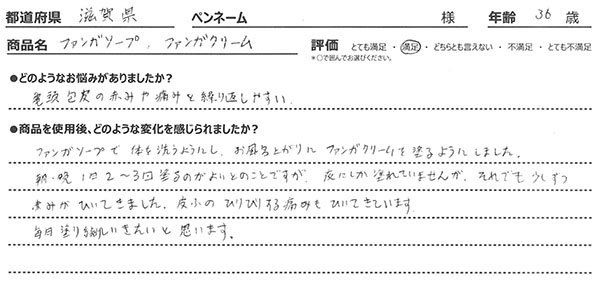 都道府県 滋賀県 ペンネーム 様 年齢 36 歳
商品名 ファンガソープ、ファンガクリーム 評価 とても満足 ・ 満足 ・ どちらとも言えない ・ 不満足 ・ とても不満足
*○で囲んでお選びください。
●どのようなお悩みがありましたか?
亀頭包皮の赤みや痛みを繰り返しやすい。
●商品を使用後、どのような変化を感じられましたか?
ファンガソープで体を洗うようにし、お風呂上がりにファンガクリームを塗るようにしました。
朝・晩 1日2〜3回塗るのがよいとのことですが、夜にしか塗れていませんが、それでも少しずつ
赤みがひいてきました。皮ふのぴりぴりする痛みもひいてきています。
毎日塗り続けていきたいと思います。